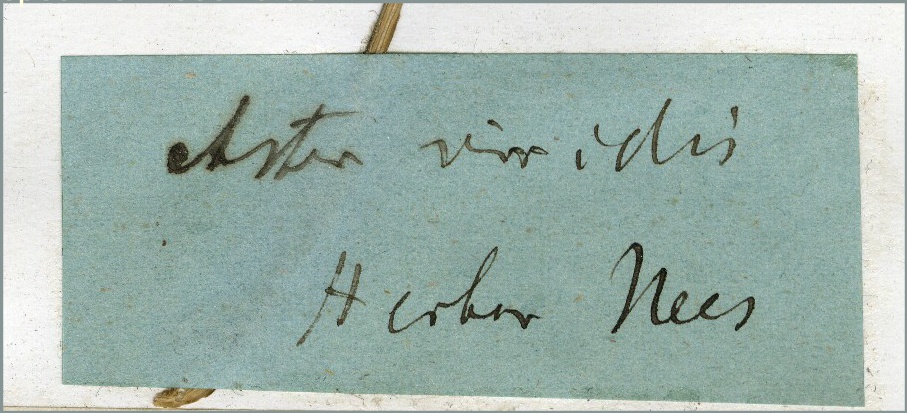 Aster viridis
Herbar Nees